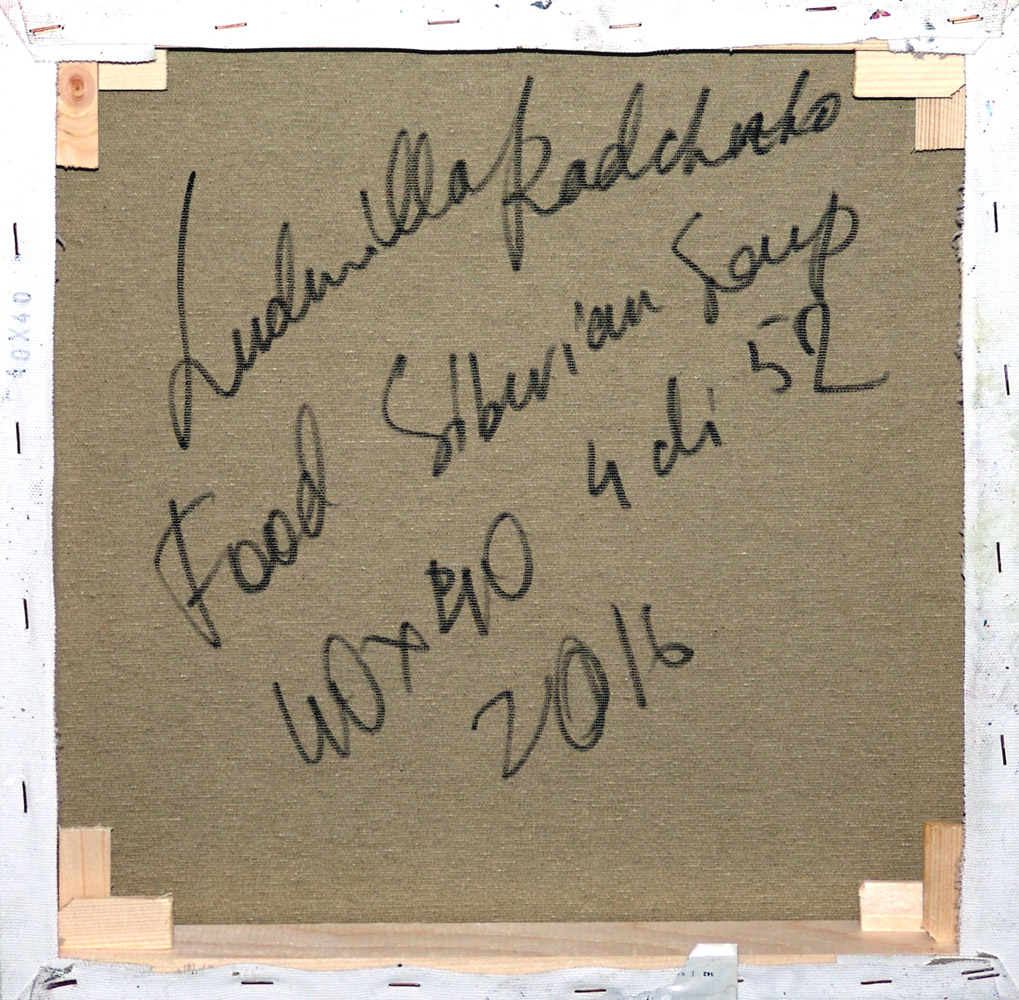 Ludmilla Radchenko
Food Siberian Soup
4 di 52
40x40
2016
40X40